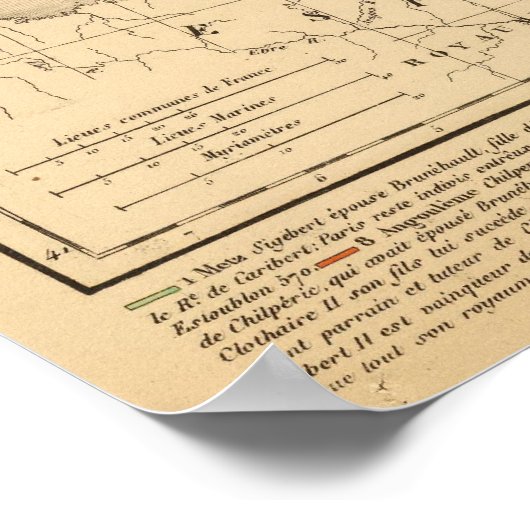 E S
Ebre R.
ROYA
Lieues communes de France
5 10 15 20 25 30
Lieues Marines
5 10 15 20
Myriamètres
5 10
41 7 6 5
1 Metz Sigebert épouse Brunehault, fille
le Re. de Caribert; Paris reste indivis entre
Estoublon 570. 8 Angoulême Chilpe
de Chilpéric, qui avait épouse Brune
Clothaire II son fils lui succède
nt parrain et tuteur de
bert II est vainqueur de
ue tout son royaum